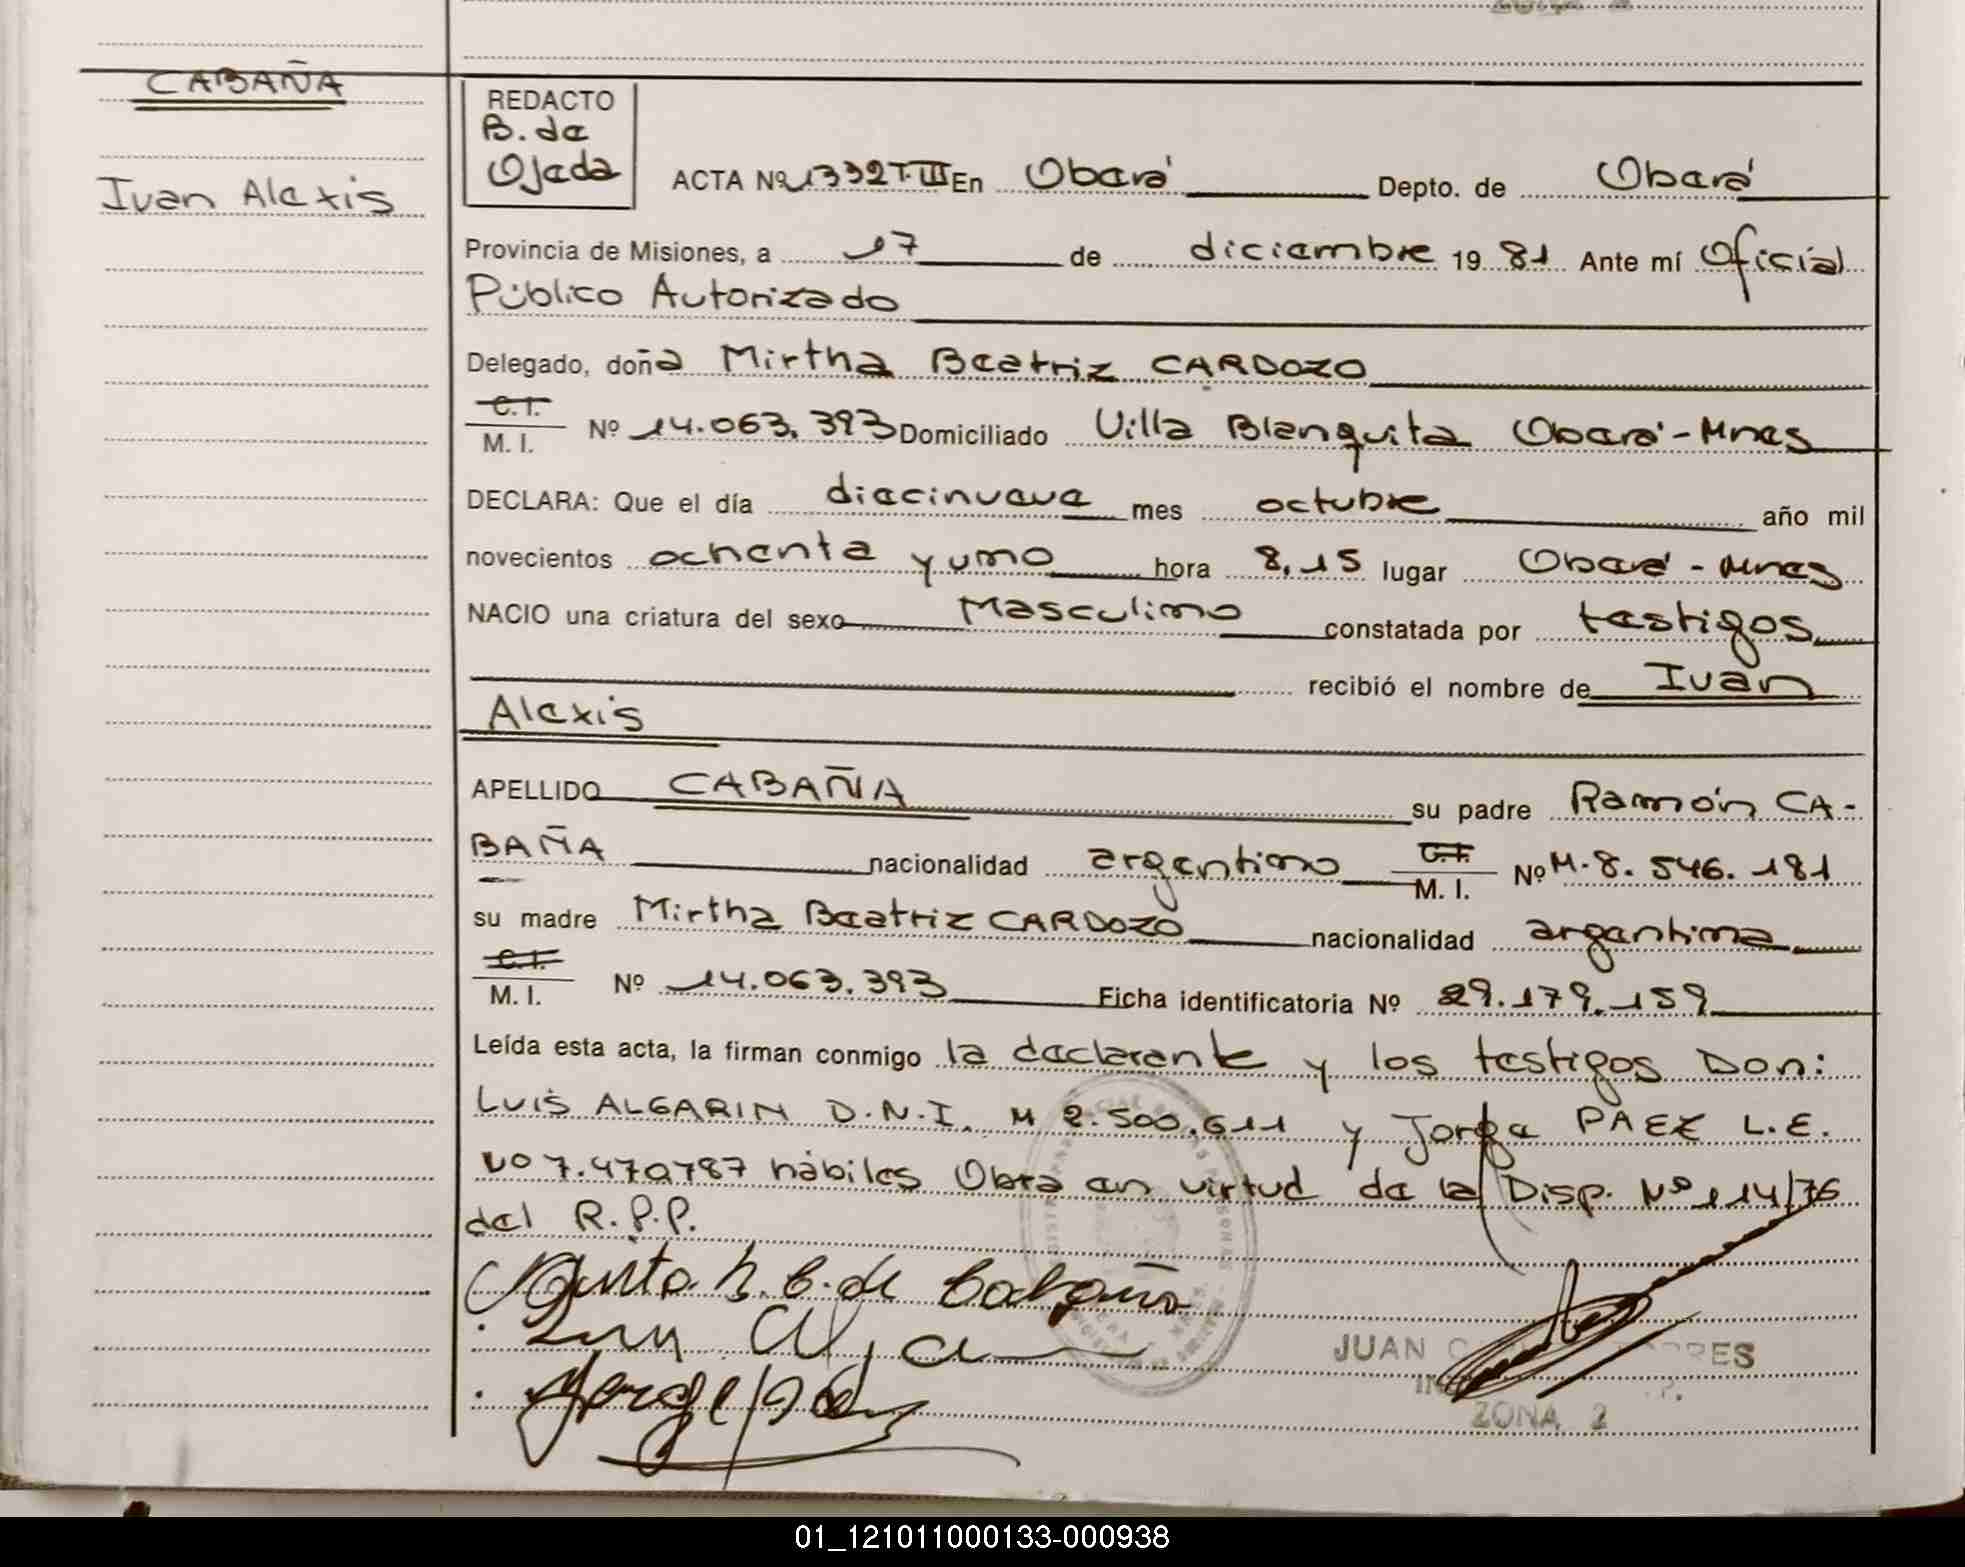 ZONA 2
CABAÑA
Ivan Alexis
REDACTO
B. de
Ojeda
ACTA Nº 1332 T.III En Oberá Depto. de Oberá
Provincia de Misiones, a 17 de diciembre 19 81 Ante mí Oficial
Público Autorizado
Delegado, doña Mirtha Beatriz CARDOZO
C.I.
M. I. Nº 14.063.393 Domiciliado Villa Blanquita Oberá-Mnes
DECLARA: Que el día diecinueve mes octubre año mil
novecientos ochenta y uno hora 8,15 lugar Oberá - Mnes
NACIO una criatura del sexo Masculino constatada por testigos
recibió el nombre de Ivan
Alexis
APELLIDO CABAÑA su padre Ramón CA-
BAÑA nacionalidad argentino C.I. M. I. Nº M. 8.546.181
su madre Mirtha Beatriz CARDOZO nacionalidad argentina
C.I.
M. I. Nº 14.063.393 Ficha identificatoria Nº 29.179.159
Leída esta acta, la firman conmigo la declarante y los testigos Don:
LUIS ALGARIN D.N.I. M 2.500.611 y Jorge PAEZ L.E.
Nº 7.470787 hábiles Obra en virtud de la Disp. Nº 114/76
del R.P.P.
JUAN
ZONA 2
01_121011000133-000938